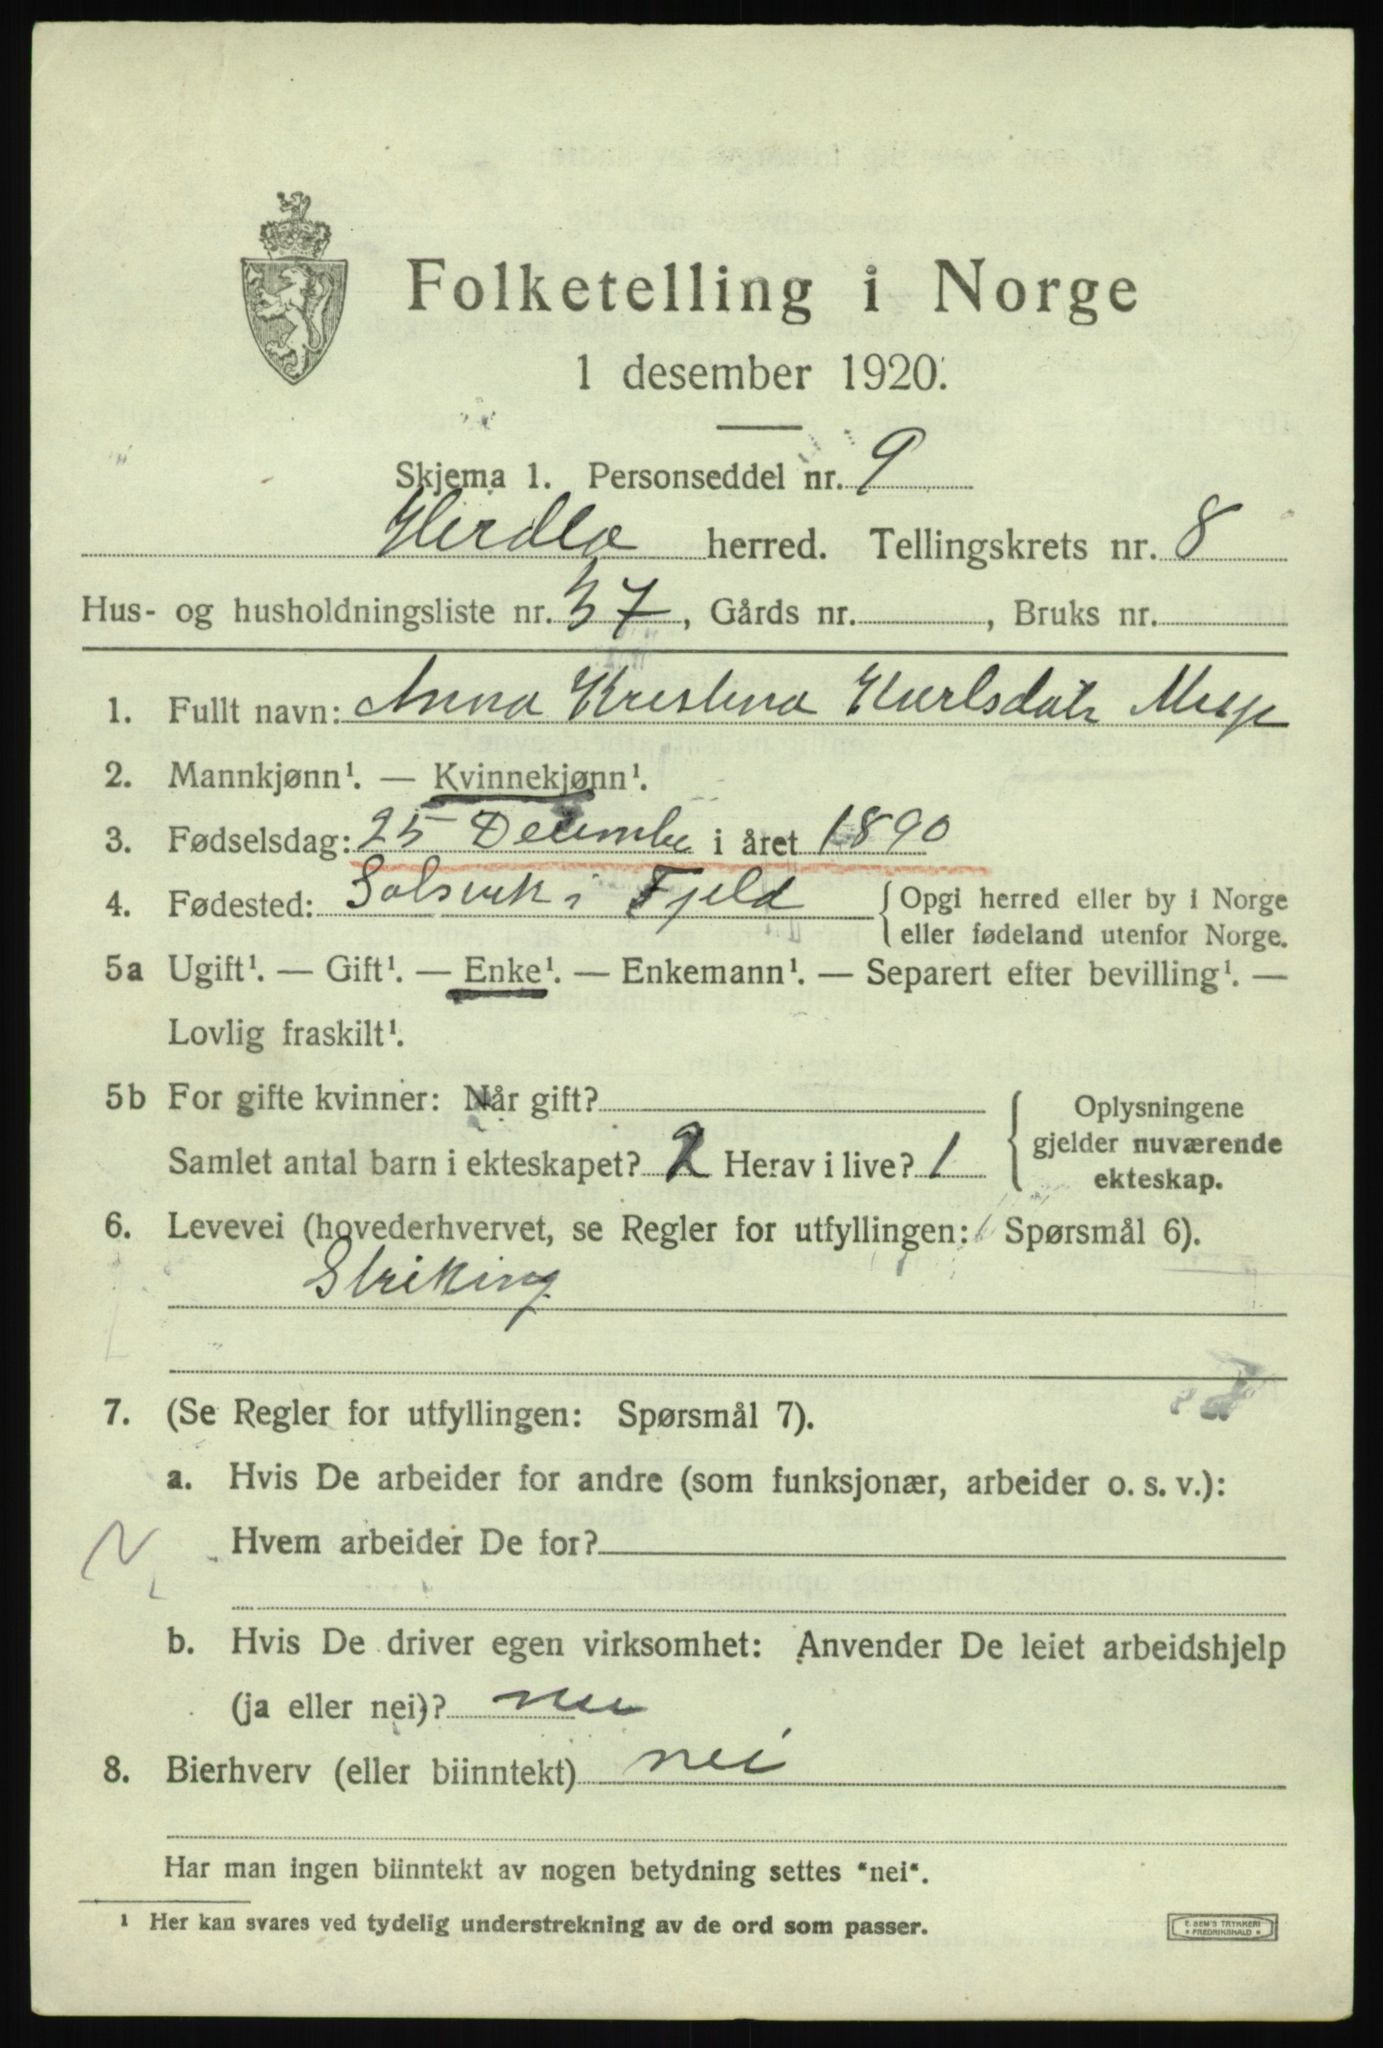 Folketelling i Norge
1 desember 1920.
Skjema 1. Personseddel nr. 9
Herdla herred. Tellingskrets nr. 8
Hus- og husholdningsliste nr. 37, Gårds nr. , Bruks nr.
1. Fullt navn: Anna Kristina Karlsdatr
2. Mannkjønn¹. — Kvinnekjønn¹.
3. Fødselsdag: 25 Decembe i året 1890
4. Fødested: Solsvik i Fjeld { Opgi herred eller by i Norge
eller fødeland utenfor Norge.
5a Ugift¹. — Gift¹. — Enke¹. — Enkemann¹. — Separert efter bevilling¹. —
Lovlig fraskilt¹.
5b For gifte kvinner: Når gift? { Oplysningene
gjelder nuværende
Samlet antal barn i ekteskapet? 2 Herav i live? 1
ekteskap.
6. Levevei (hovederhvervet, se Regler for utfyllingen: Spørsmål 6).
Strikking
7. (Se Regler for utfyllingen: Spørsmål 7).
a. Hvis De arbeider for andre (som funksjonær, arbeider o. s. v.):
Hvem arbeider De for?
b. Hvis De driver egen virksomhet: Anvender De leiet arbeidshjelp
(ja eller nei)? nei
8. Bierhverv (eller biinntekt) nei
Har man ingen biinntekt av nogen betydning settes "nei".
¹ Her kan svares ved tydelig understrekning av de ord som passer.
E. SEM'S TRYKKERI
* FREDRIKSHALD *